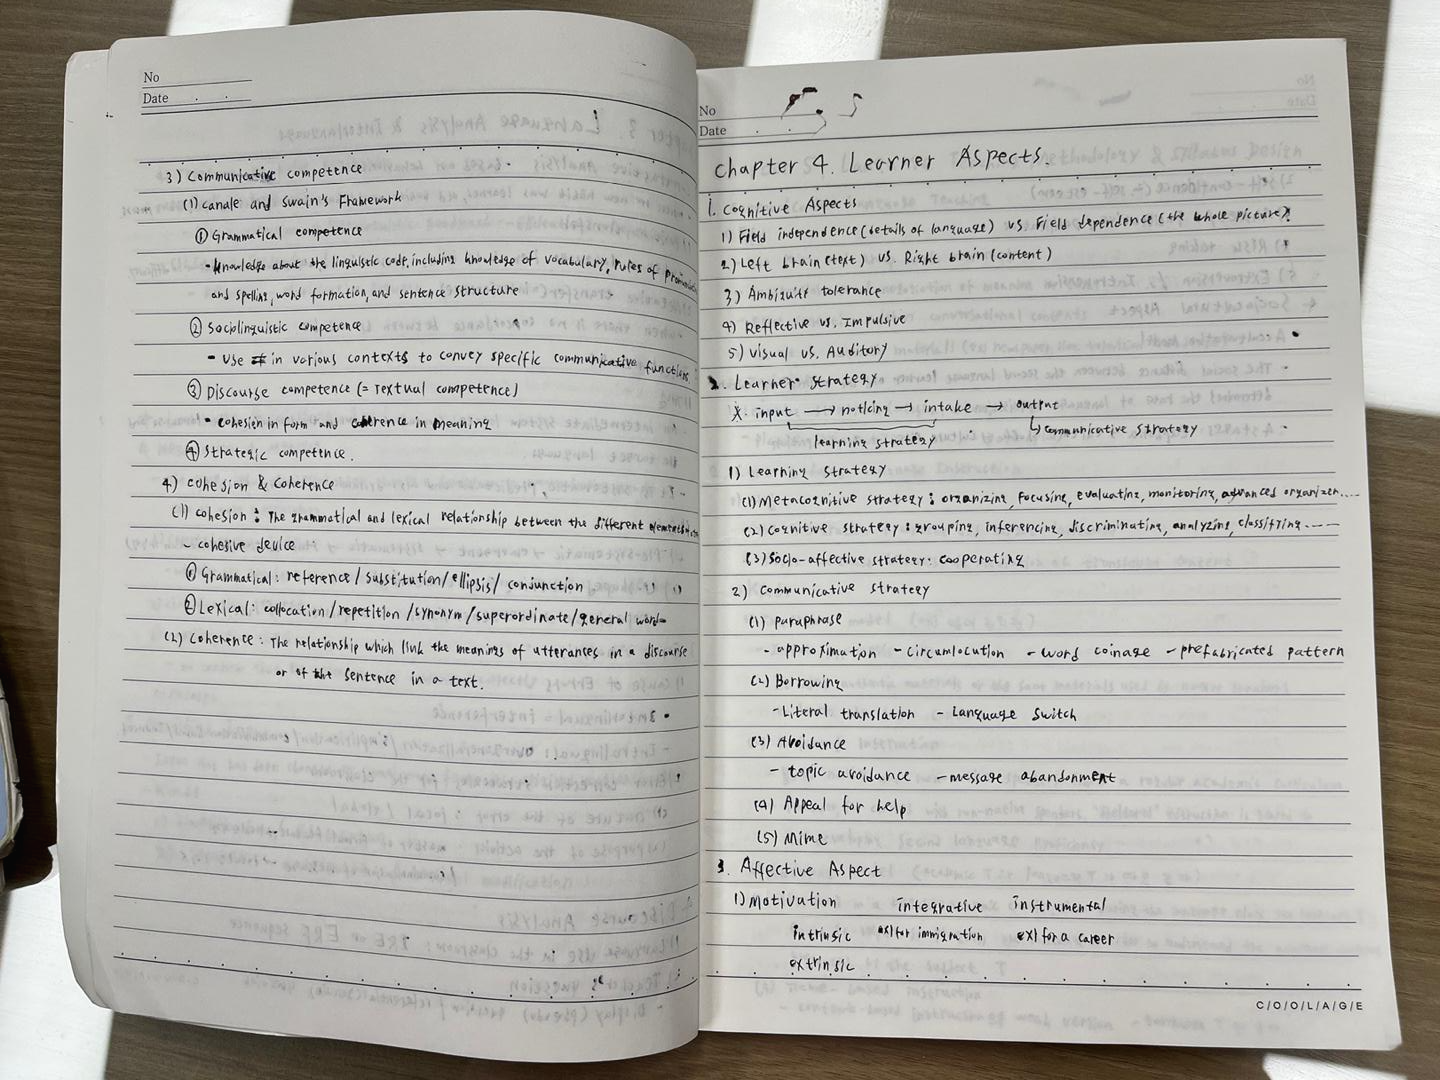 No
Date
3) Communicative competence
(1) canale and swain's Framework
① Grammatical competence
• knowledge about the linguistic code, including knowledge of vocabulary, rules of
and spelling, word formation, and sentence structure
② Sociolinguistic competence
• use in various contexts to convey specific communicative functions.
③ Discourse competence (= Textual competence)
• cohesion in form and coherence in meaning
④ Strategic competence.
4) cohesion & coherence
(1) cohesion : The grammatical and lexical relationship between the different elements
- cohesive device
① Grammatical : reference / substitution / ellipsis / conjunction
② Lexical : collocation / repetition / synonym / superordinate / general word
(2) Coherence : The relationship which link the meanings of utterances in a discourse
or of the sentence in a text.
No
Date
chapter 4. Learner Aspects.
1. Cognitive Aspects
1) Field independence (details of language) vs. Field dependence (the whole picture)
2) Left brain (text) vs. Right brain (content)
3) Ambiguity tolerance
4) Reflective vs. Impulsive
5) Visual vs. Auditory
2. Learner strategy
※. input → noticing → intake → output
learning strategy
↳ communicative strategy
1) Learning strategy
(1) Metacognitive strategy : organizing, focusing, evaluating, monitoring, advanced organizer....
(2) Cognitive strategy : grouping, inferencing, discriminating, analyzing, classifying ----
(3) Socio-affective strategy : cooperating
2) Communicative strategy
(1) Paraphrase
- approximation - circumlocution - word coinage - prefabricated pattern
(2) Borrowing
- Literal translation - Language switch
(3) Avoidance
- topic avoidance - message abandonment
(4) Appeal for help
(5) Mime
3. Affective Aspect
1) Motivation integrative instrumental
intrinsic ex) for immigration ex) for a career
extrinsic
C/O/O/L/A/G/E